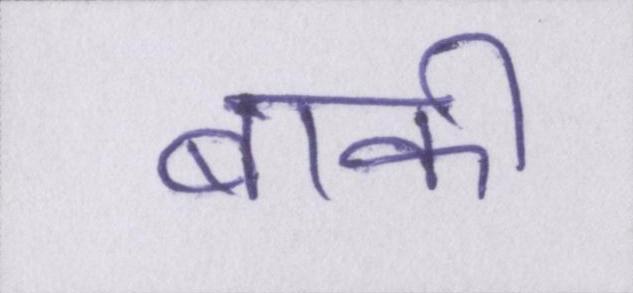 बाकी